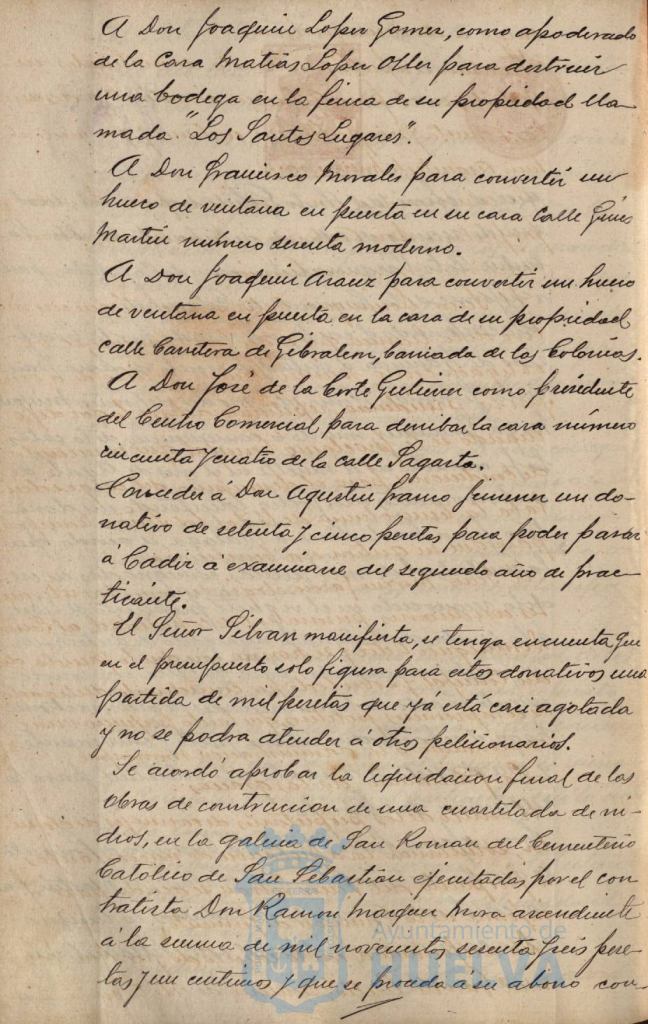 A Don Joaquin Lopez Gomez, como apoderado
de la Casa Matias Lopez Oller para destruir
una bodega en la finca de su propiedad lla-
mada "Los Santos Lugares".
A Don Francisco Morales para convertir un
hueco de ventana en puerta en su casa Calle Ginés
Martin numero sesenta moderno.
A Don Joaquin Arauz para convertir un hueco
de ventana en puerta en la casa de su propiedad
calle Carretera de Gibraleon, barriada de las Colonias.
A Don José de la Corte Gutierrez como presidente
del Centro Comercial para derribar la casa número
cincuenta y cuatro de la calle Sagasta.
Conceder á Don Agustin Franco Jimenez un do-
nativo de setenta y cinco pesetas para poder pasar
á Cadiz á examinarse del segundo año de prac-
ticante.
El Señor Silvan manifiesta, se tenga en cuenta que
en el presupuesto solo figura para estos donativos una
partida de mil pesetas que yá está casi agotada
y no se podra atender á otros peticionarios.
Se acordó aprobar la liquidacion final de las
obras de construccion de una cuartelada de ni-
chos, en la galeria de San Roman del Cementerio
Católico de San Sebastian ejecutadas por el con-
tratista Don Ramon Marquez Mora ascendiente
á la suma de mil novecientos sesenta y seis pese-
tas y un centimos y que se proceda á su abono con-
Ayuntamiento de
HUELVA